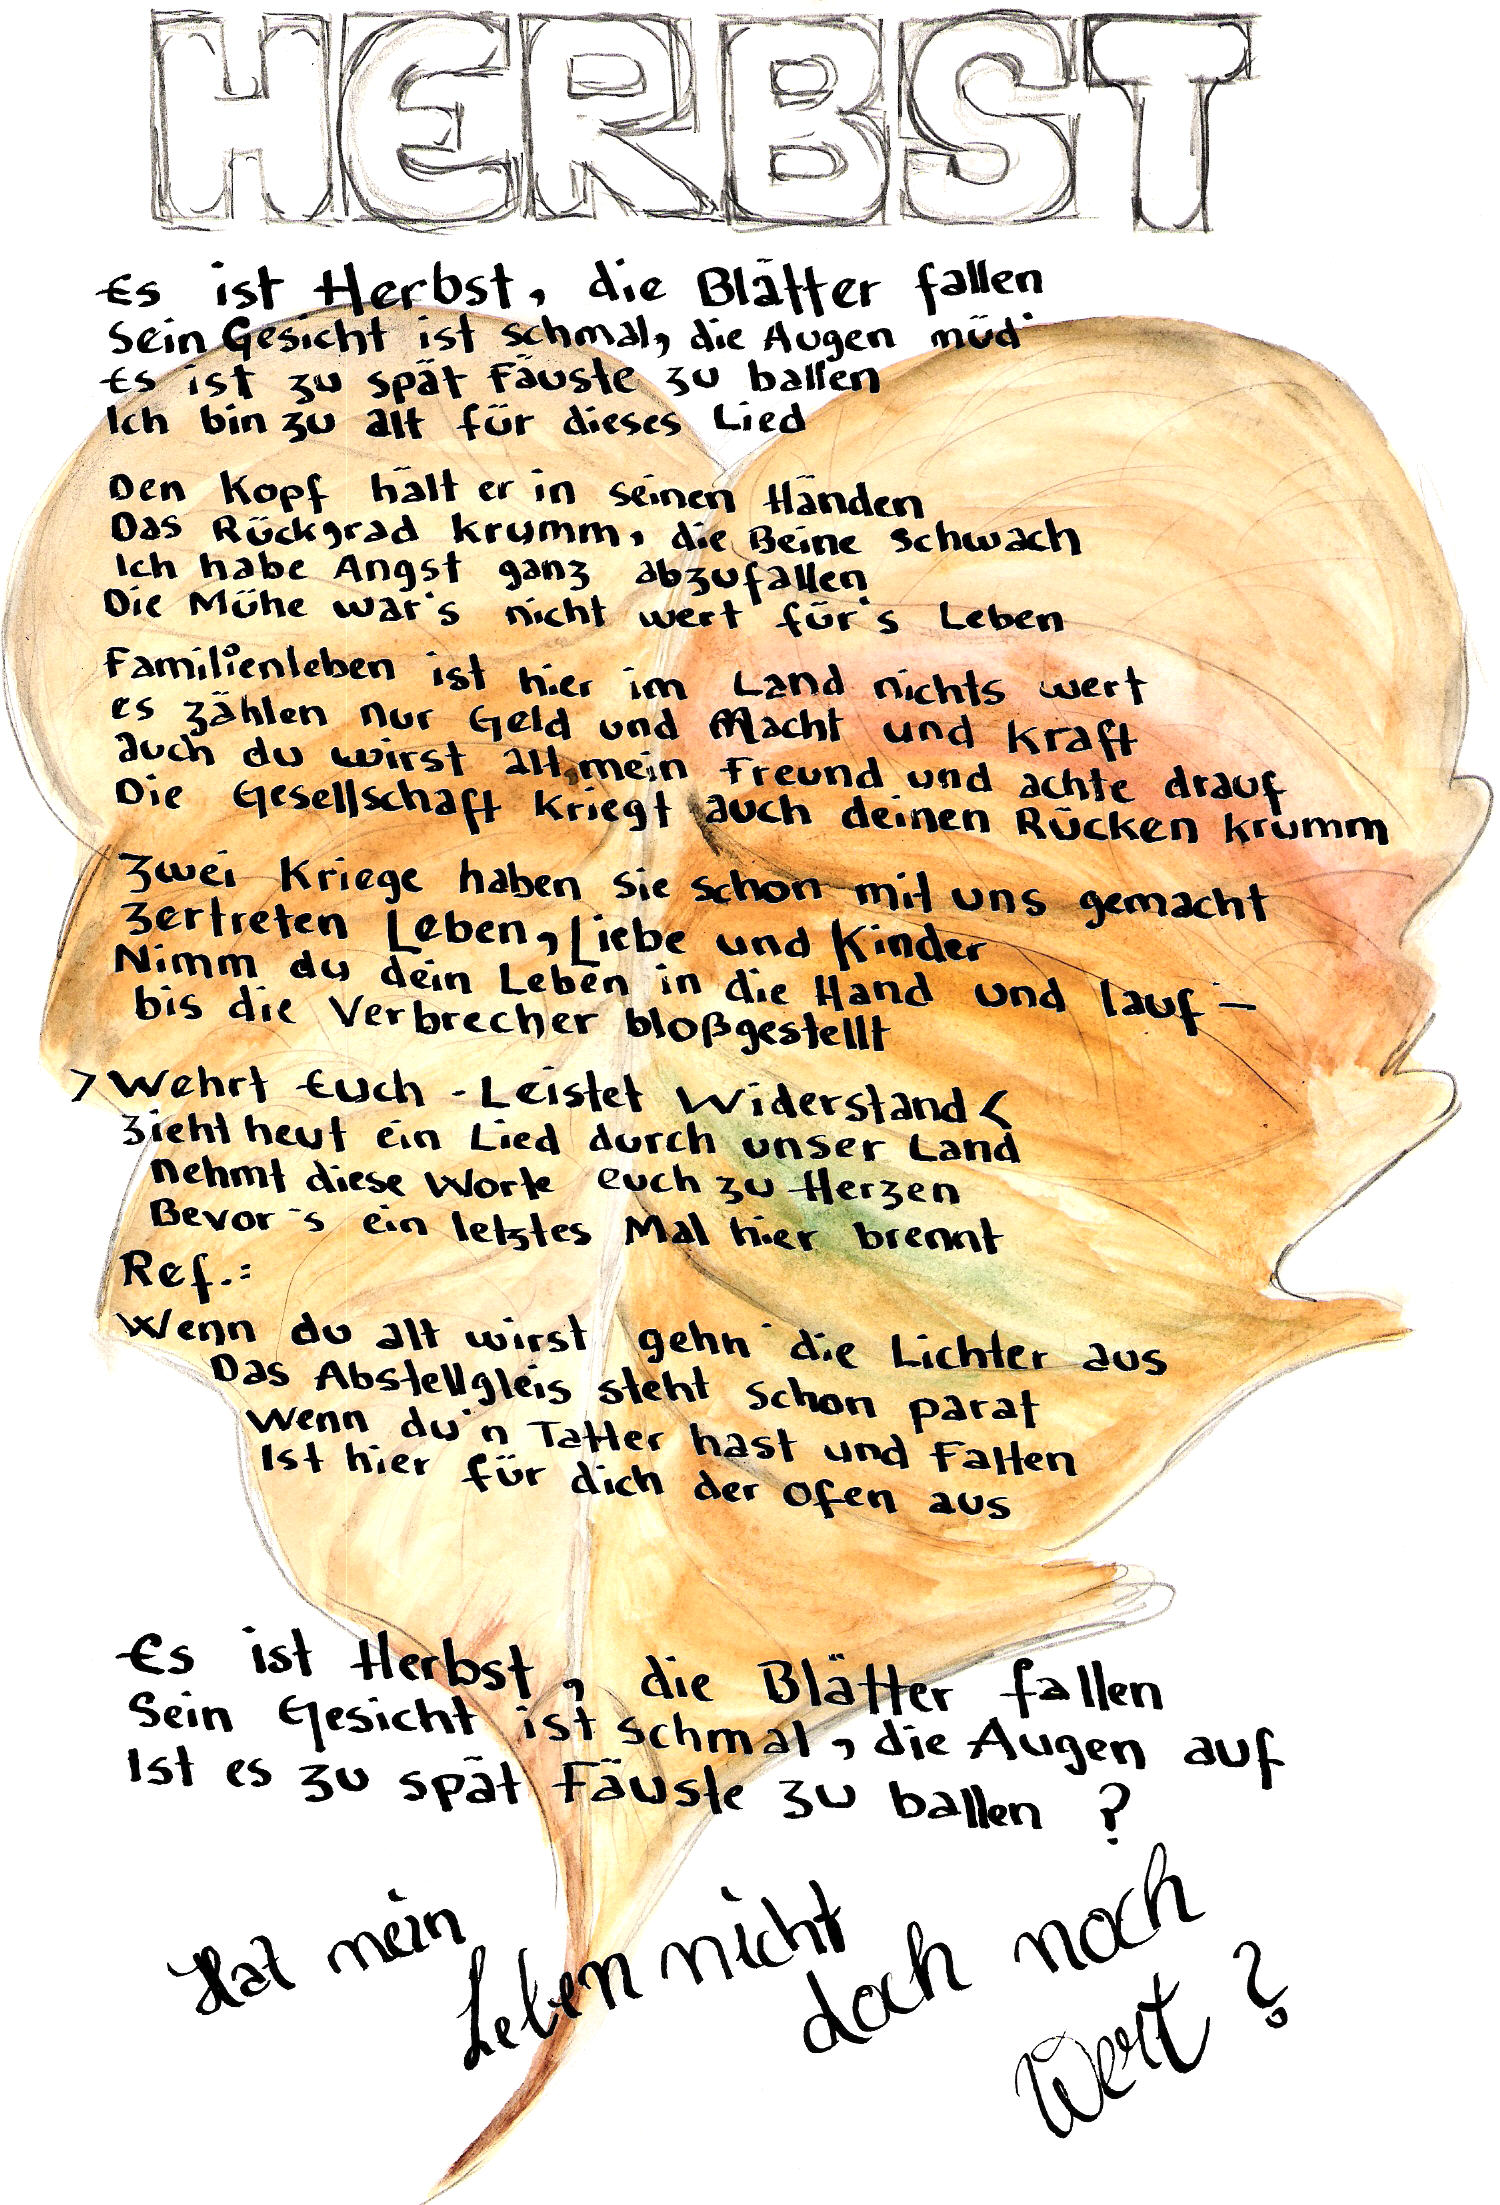 HERBST
Es ist Herbst, die Blätter fallen
Sein Gesicht ist schmal, die Augen müd'
Es ist zu spät Fäuste zu ballen
Ich bin zu alt für dieses Lied
Den Kopf hält er in seinen Händen
Das Rückgrad krumm, die Beine schwach
Ich habe Angst ganz abzufallen
Die Mühe war's nicht wert für's Leben
Familienleben ist hier im Land nichts wert
es zählen nur Geld und Macht und Kraft
auch du wirst alt, mein Freund und achte drauf
Die Gesellschaft kriegt auch deinen Rücken krumm
Zwei Kriege haben sie schon mit uns gemacht
Zertreten Leben, Liebe und Kinder
Nimm du dein Leben in die Hand und lauf -
bis die Verbrecher bloßgestellt
>Wehrt Euch - Leistet Widerstand<
Zieht heut ein Lied durch unser Land
nehmt diese Worte euch zu Herzen
Bevor's ein letztes Mal hier brennt
Ref.:
Wenn du alt wirst gehn die Lichter aus
Das Abstellgleis steht schon parat
Wenn du'n Tatter hast und Falten
Ist hier für dich der Ofen aus
Es ist Herbst, die Blätter fallen
Sein Gesicht ist schmal, die Augen auf
Ist es zu spät Fäuste zu ballen ?
Hat mein
Leben nicht
doch noch
Wert ?